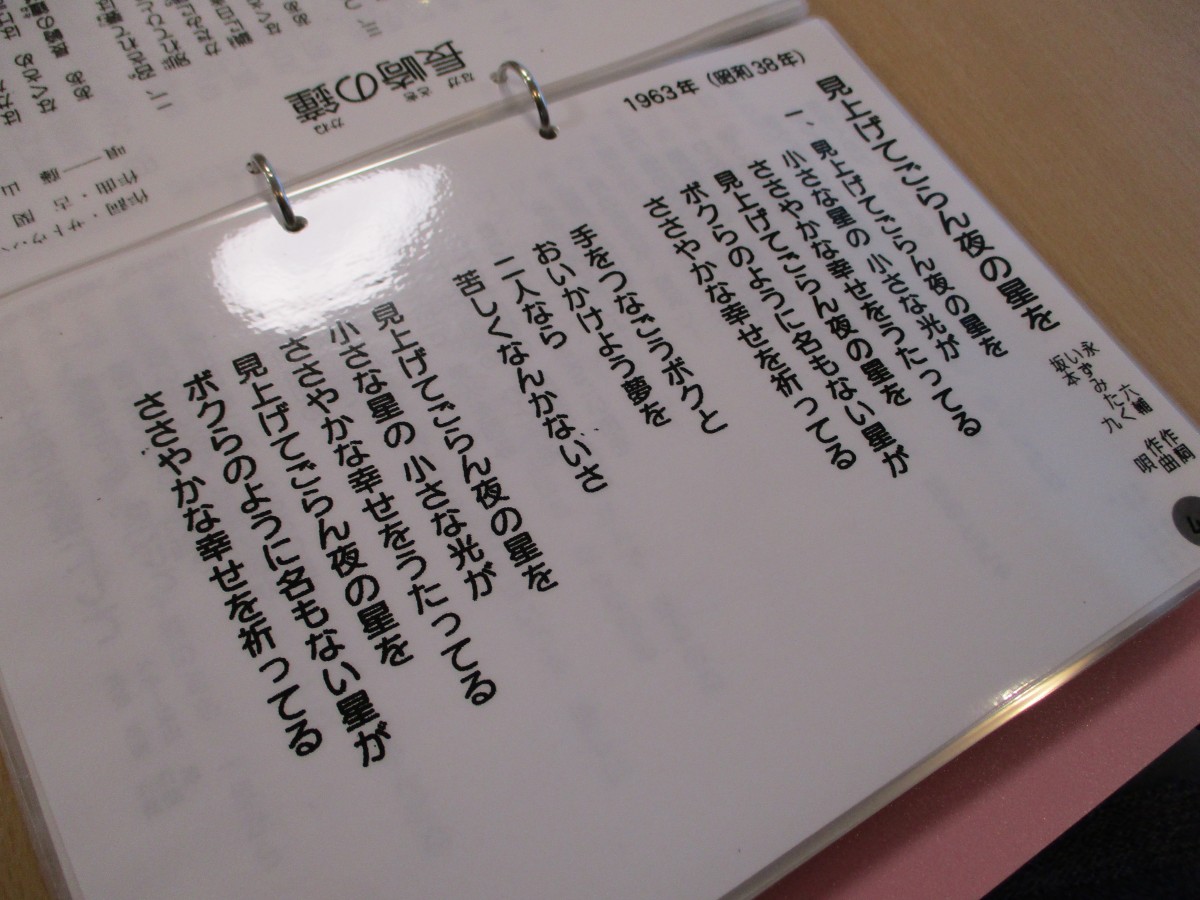 見上げてごらん夜の星を
永 六輔 作詞
いずみたく 作曲
坂本 九 唄
1963年（昭和38年）
一、見上げてごらん夜の星を
小さな星の 小さな光が
ささやかな幸せをうたってる
見上げてごらん夜の星を
ボクらのように名もない星が
ささやかな幸せを祈ってる
手をつなごうボクと
おいかけよう夢を
二人なら
苦しくなんかないさ
見上げてごらん夜の星を
小さな星の 小さな光が
ささやかな幸せをうたってる
見上げてごらん夜の星を
ボクらのように名もない星が
ささやかな幸せを祈ってる
長崎の鐘
なが さき かね
作詞・サトウ・ハ
作曲・古 関
唄 ― 藤 山